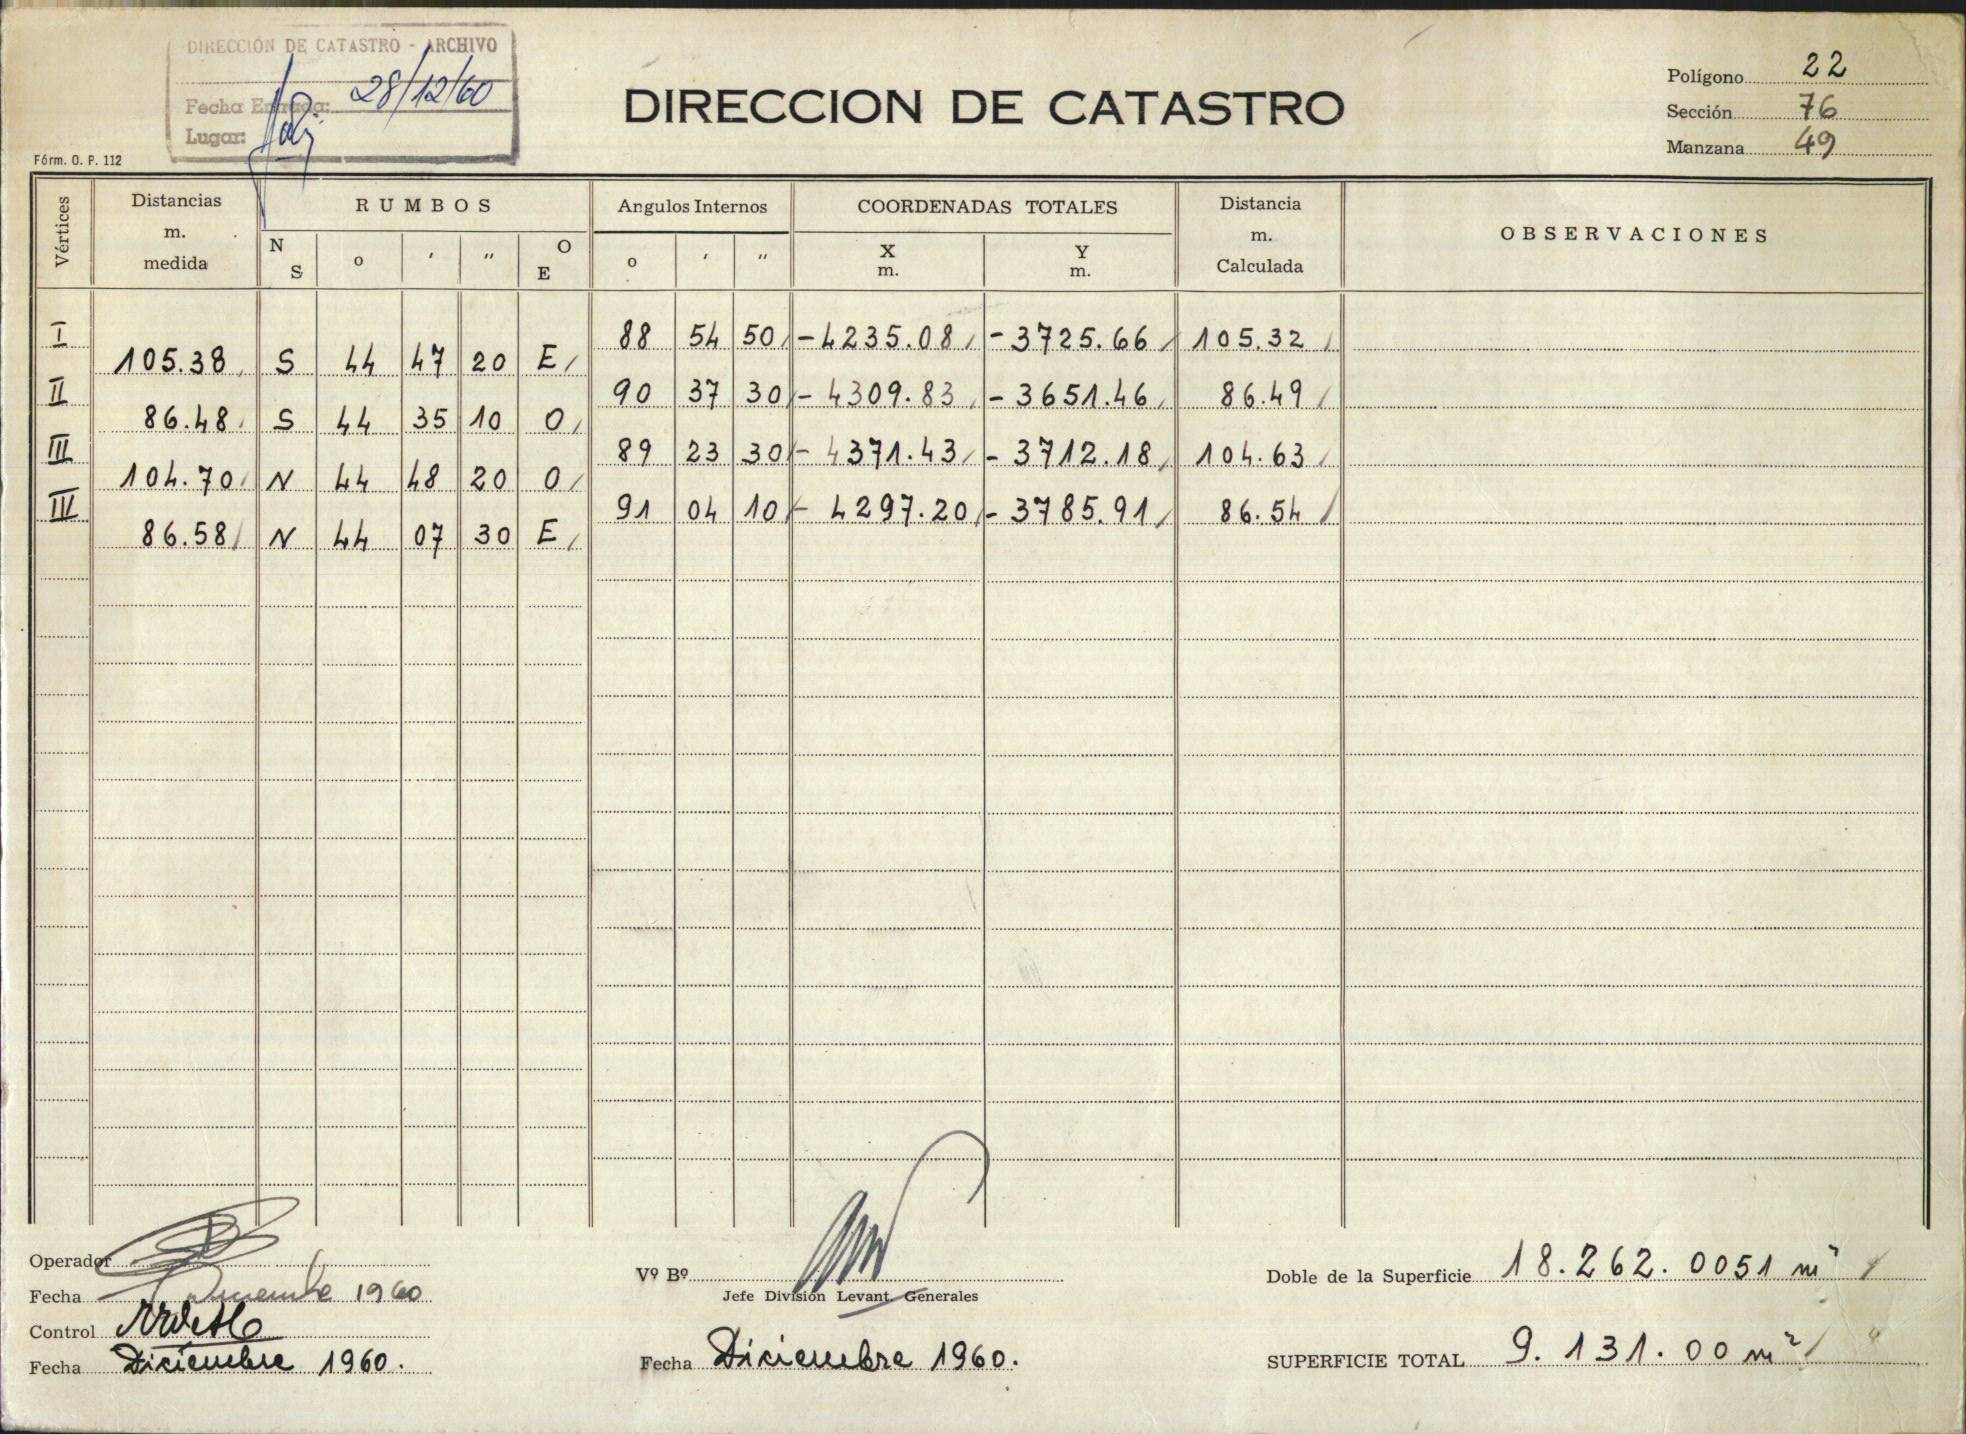 DIRECCIÓN DE CATASTRO - ARCHIVO
Fecha Entrada: 28/12/60
Lugar:
DIRECCION DE CATASTRO
Polígono 22
Sección 76
Manzana 49
Fórm. O. P. 112
Vértices Distancias m. medida RUMBOS Angulos Internos COORDENADAS TOTALES Distancia m. Calculada OBSERVACIONES
N S o ' " O E o ' " X m. Y m.
I 88 54 50 -4235.08 -3725.66 105.32
105.38 S 44 47 20 E
II 90 37 30 -4309.83 -3651.46 86.49
86.48 S 44 35 10 O
III 89 23 30 -4371.43 -3712.18 104.63
104.70 N 44 48 20 O
IV 91 04 10 -4297.20 -3785.91 86.54
86.58 N 44 07 30 E
Operador
Fecha Diciembre 1960
Control
Fecha Diciembre 1960.
Vº Bº
Jefe División Levant. Generales
Fecha Diciembre 1960.
Doble de la Superficie 18.262.0051 m²
SUPERFICIE TOTAL 9.131.00 m²